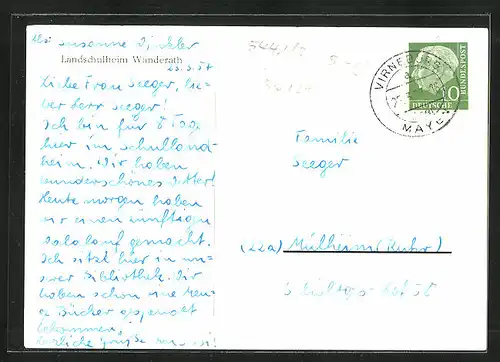 Abs. Susanne Winkler
Landschulheim Wanderath
23.5.57
Liebe Frau Seeger, lie-
ber Herr Seeger!
Ich bin für 8 Tage
hier im Schulland-
heim. Wir haben
wunderschönes Wetter!
Heute morgen haben
wir einen zünftigen
gemacht.
Ich sitz hier in un-
srer Bibliothek. Wir
haben schon eine Men-
ge Bücher
bekommen.
Herzliche Grüße von
VIRNEBURG
MAYEN
10
DEUTSCHE
BUNDESPOST
Familie
Seeger
(22a) Mülheim (Ruhr)
Hof 58